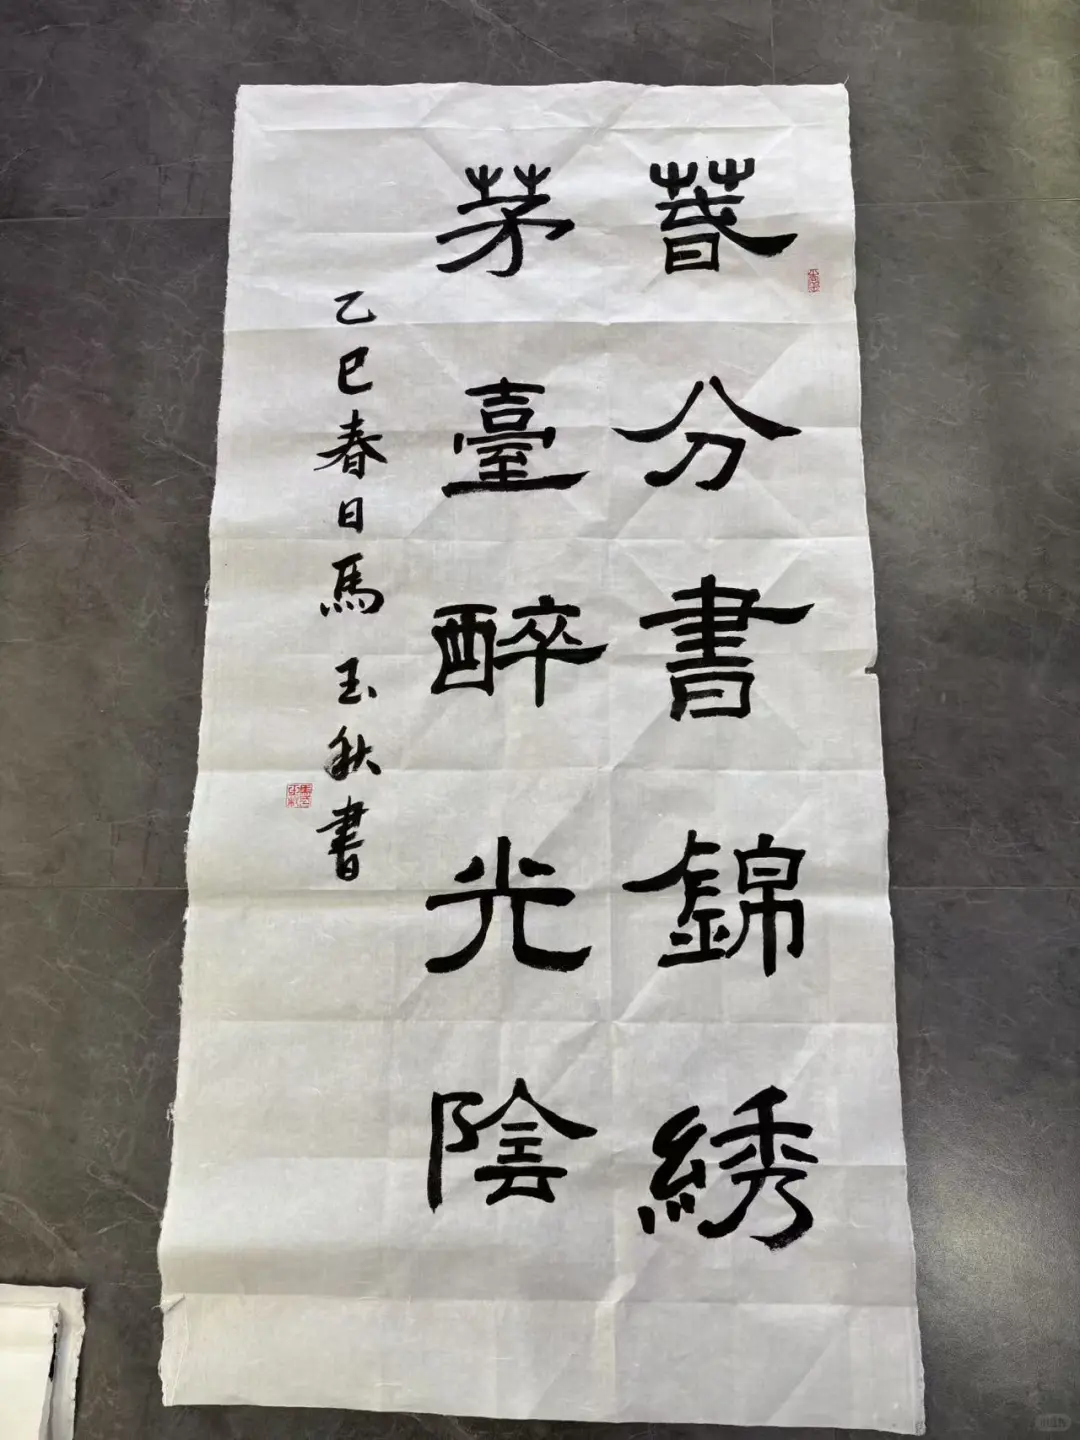 萅分書錦綉
茅臺醉光陰
乙巳春日馬玉秋書